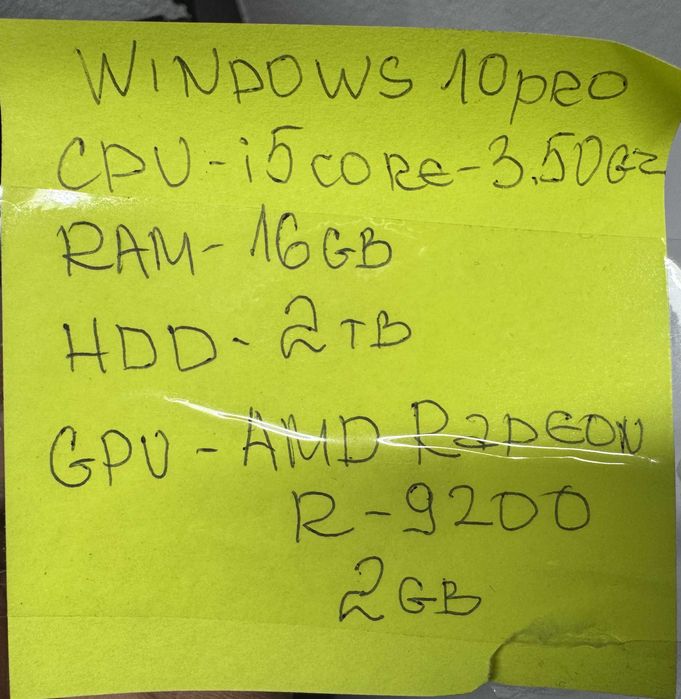 WINDOWS 10PRO
CPU-i5CORE-3.50GZ
RAM-16GB
HDD-2TB
GPU-AMD RADEON
R-9200
2GB